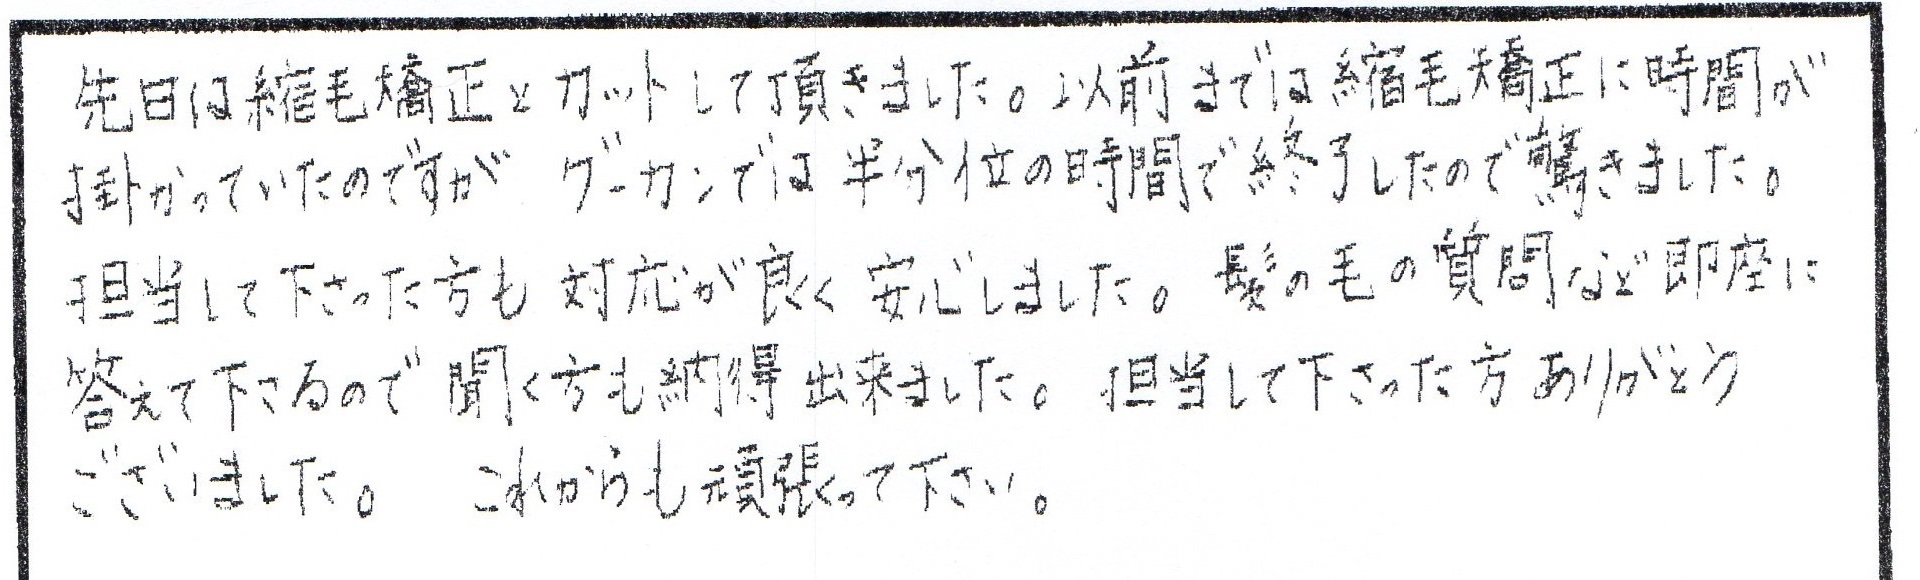 先日は縮毛矯正とカットして頂きました。以前までは縮毛矯正に時間が
掛かっていたのですが グーカンでは半分位の時間で終了したので驚きました。
担当して下さった方も対応が良く安心しました。髪の毛の質問など即座に
答えて下さるので聞く方も納得出来ました。担当して下さった方ありがとう
ございました。 これからも頑張って下さい。